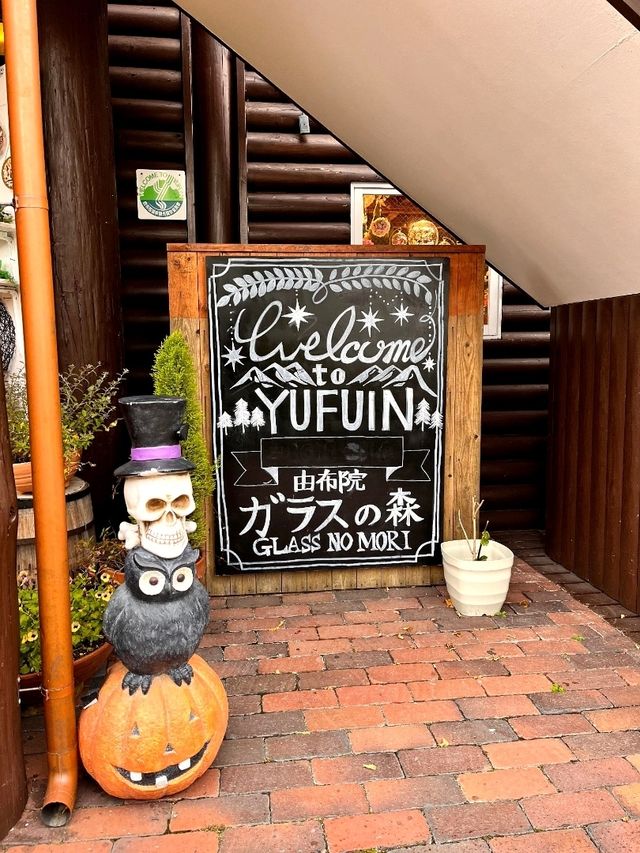 WELCOME TO
Welcome
to
YUFUIN
由布院
ガラスの森
GLASS NO MORI